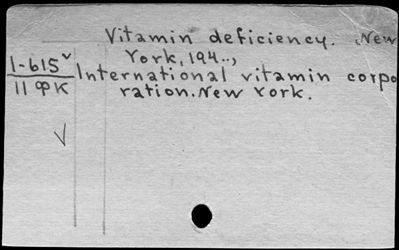 Vitamin deficiency. New
York, 194..,
1-615 v
11 ФК
International vitamin corpo
ration. New York.
V